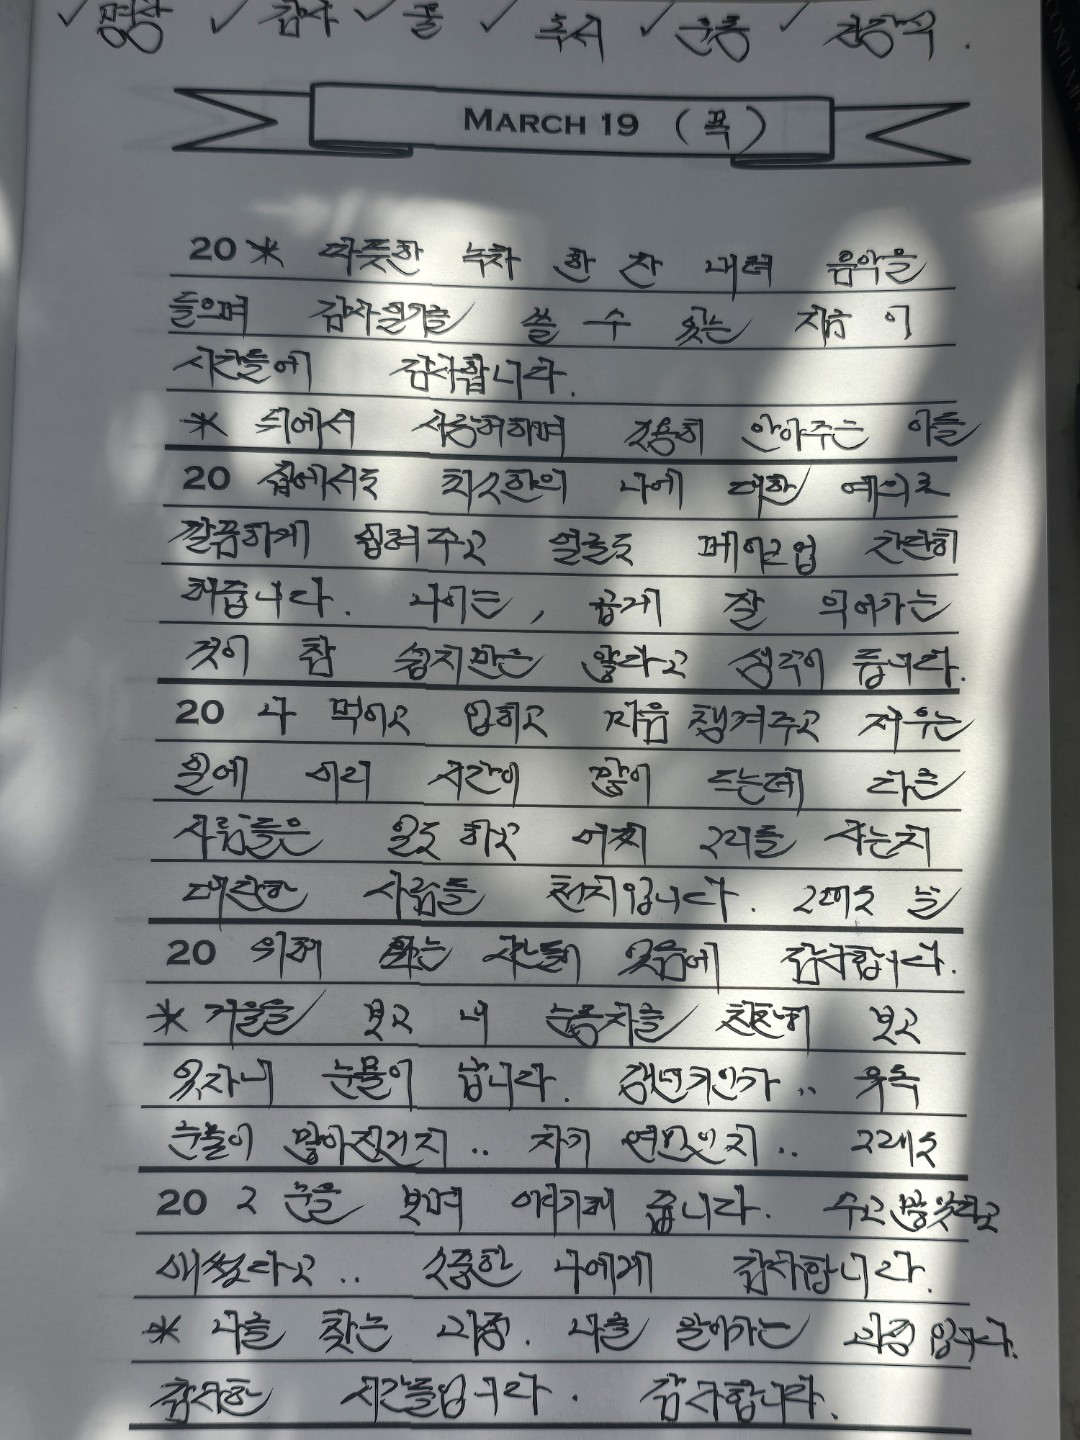 ✓ 명상 ✓ 감사 ✓ 물 ✓ 독서 ✓ 운동 ✓ 건강식.
MARCH 19 (목)
20 * 따뜻한 녹차 한 잔 내려 음악을
들으며 감사일기를 쓸 수 있는 지금 이
시간들에 감사합니다.
* 뒤에서 사랑해하며 조용히 안아주는 이들
20 집에서도 최소한의 나에 대한 예의로
깔끔하게 입혀주고 얼굴도 메이크업 찬찬히
해줍니다. 나이든, 곱게 잘 익어가는
것이 참 쉽지만은 않다고 생각이 듭니다.
20 나 먹이고 입히고 마음 챙겨주고 재우는
일에 이리 시간이 많이 드는데 다른
사람들은 일도 하고 어찌 그리들 사는지
대단한 사람들 천지입니다. 그래도 날
20 위해 하는 시간들이 있음에 감사합니다.
* 거울을 보고 내 눈동자를 찬찬히 보고
있자니 눈물이 납니다. 갱년기인가.. 부쩍
눈물이 많아진건지.. 자기 연민인지.. 그래도
20 그 눈을 보며 얘기해 줍니다. 수고많았다고
애썼다고.. 소중한 나에게 감사합니다.
* 나를 찾는 과정. 나를 알아가는 과정입니다.
감사한 시간들입니다. 감사합니다.